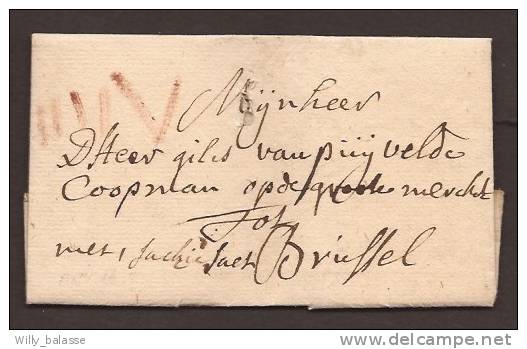 Mijnheer
DHeer gilis van puijvelde
Coopman op de merckt
Tot
met 1 sackie saet Brussel
Willy_balasse
delcampe.net